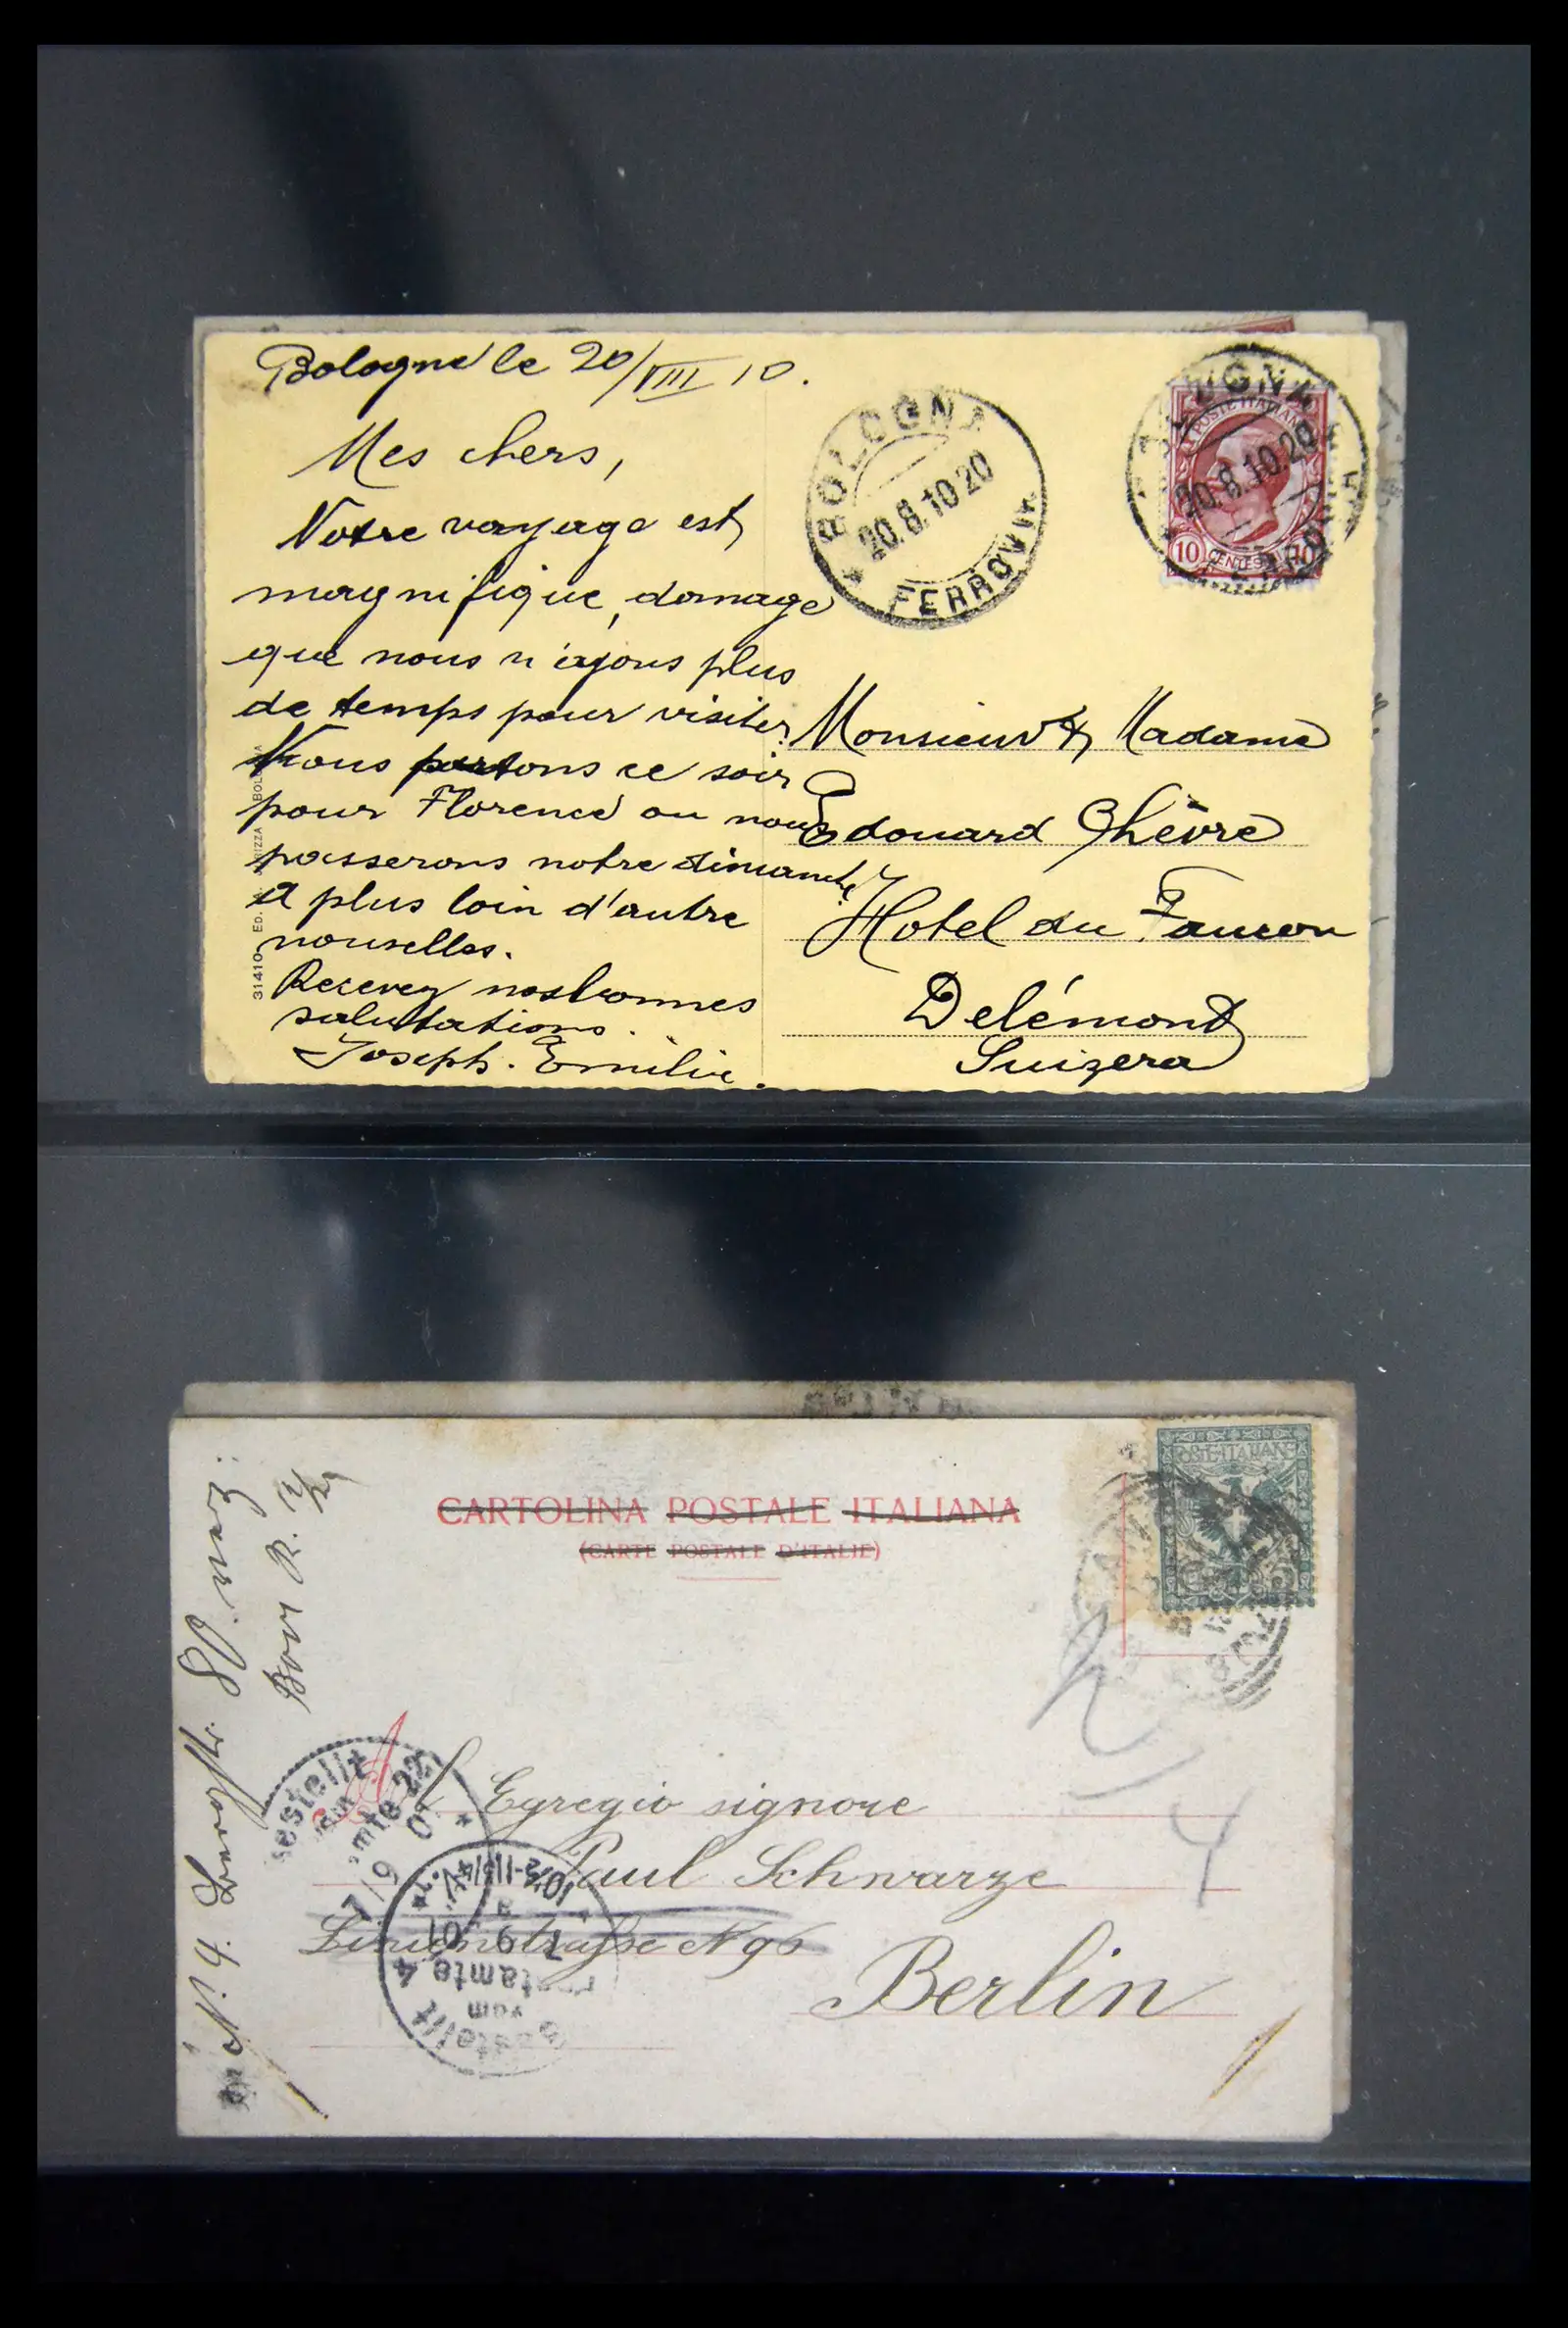 Bologne le 20/VIII 10.
Mes chers,
Notre voyage est
magnifique, domage
que nous n'ayons plus
de temps pour visiter.
Nous partons ce soir
pour Florence ou nous
passerons notre dimanche.
A plus loin d'autre
nouvelles.
Recevez nos bonnes
salutations.
Joseph. Emilie.
31410 ED.
BOLOGNA
20.8.10 20
FERROVIA
BOLOGNA
POSTE ITALIANE
20.8.10.20
FERROVIA
10 CENTESIMI 10
Monsieur & Madame
Edouard Chèvre
Hotel du Faucon
Delémont
Suizera
CARTOLINA POSTALE ITALIANA
(CARTE POSTALE D'ITALIE)
POSTE ITALIANE
Egregio signore
Paul Schwarze
Linienstraße N 96
Berlin
Bestellt
vom
Postamte 22
7/9 01
Bestellt
vom
Postamte 4
7 9 01
10½-11¾ V.
4